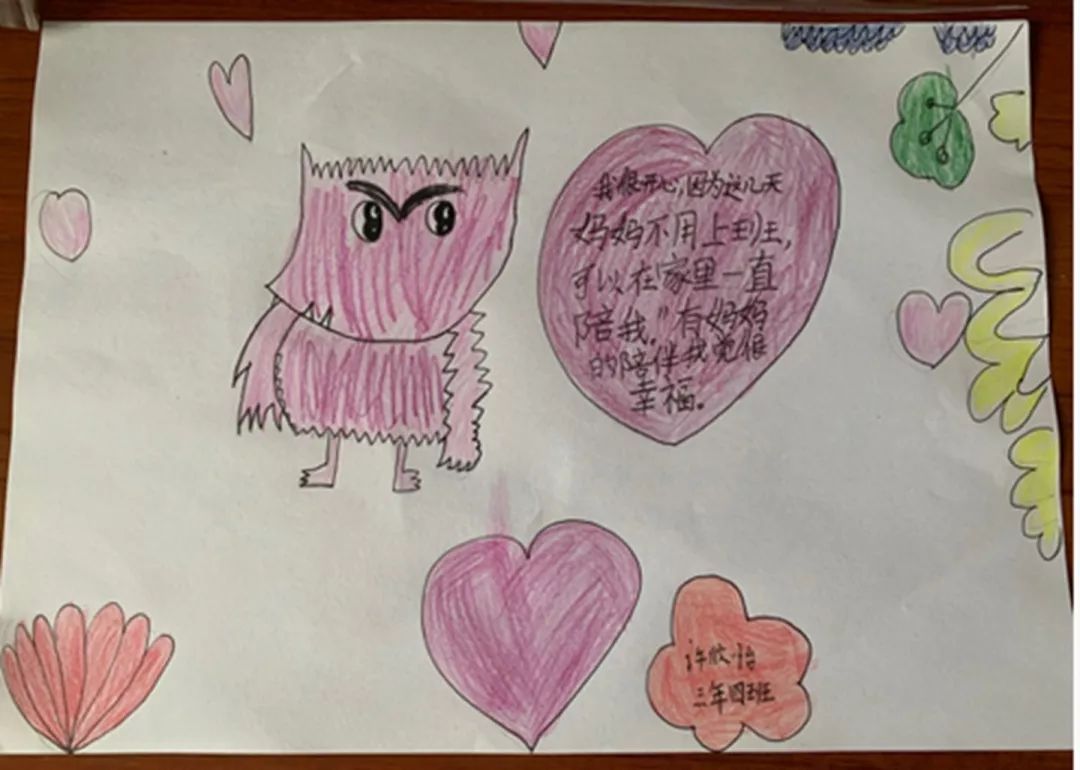 我很开心,因为这几天
妈妈不用上班,
可以在家里一直
陪我。"有妈妈
的陪伴我觉很
幸福。
许 怡
三年四班